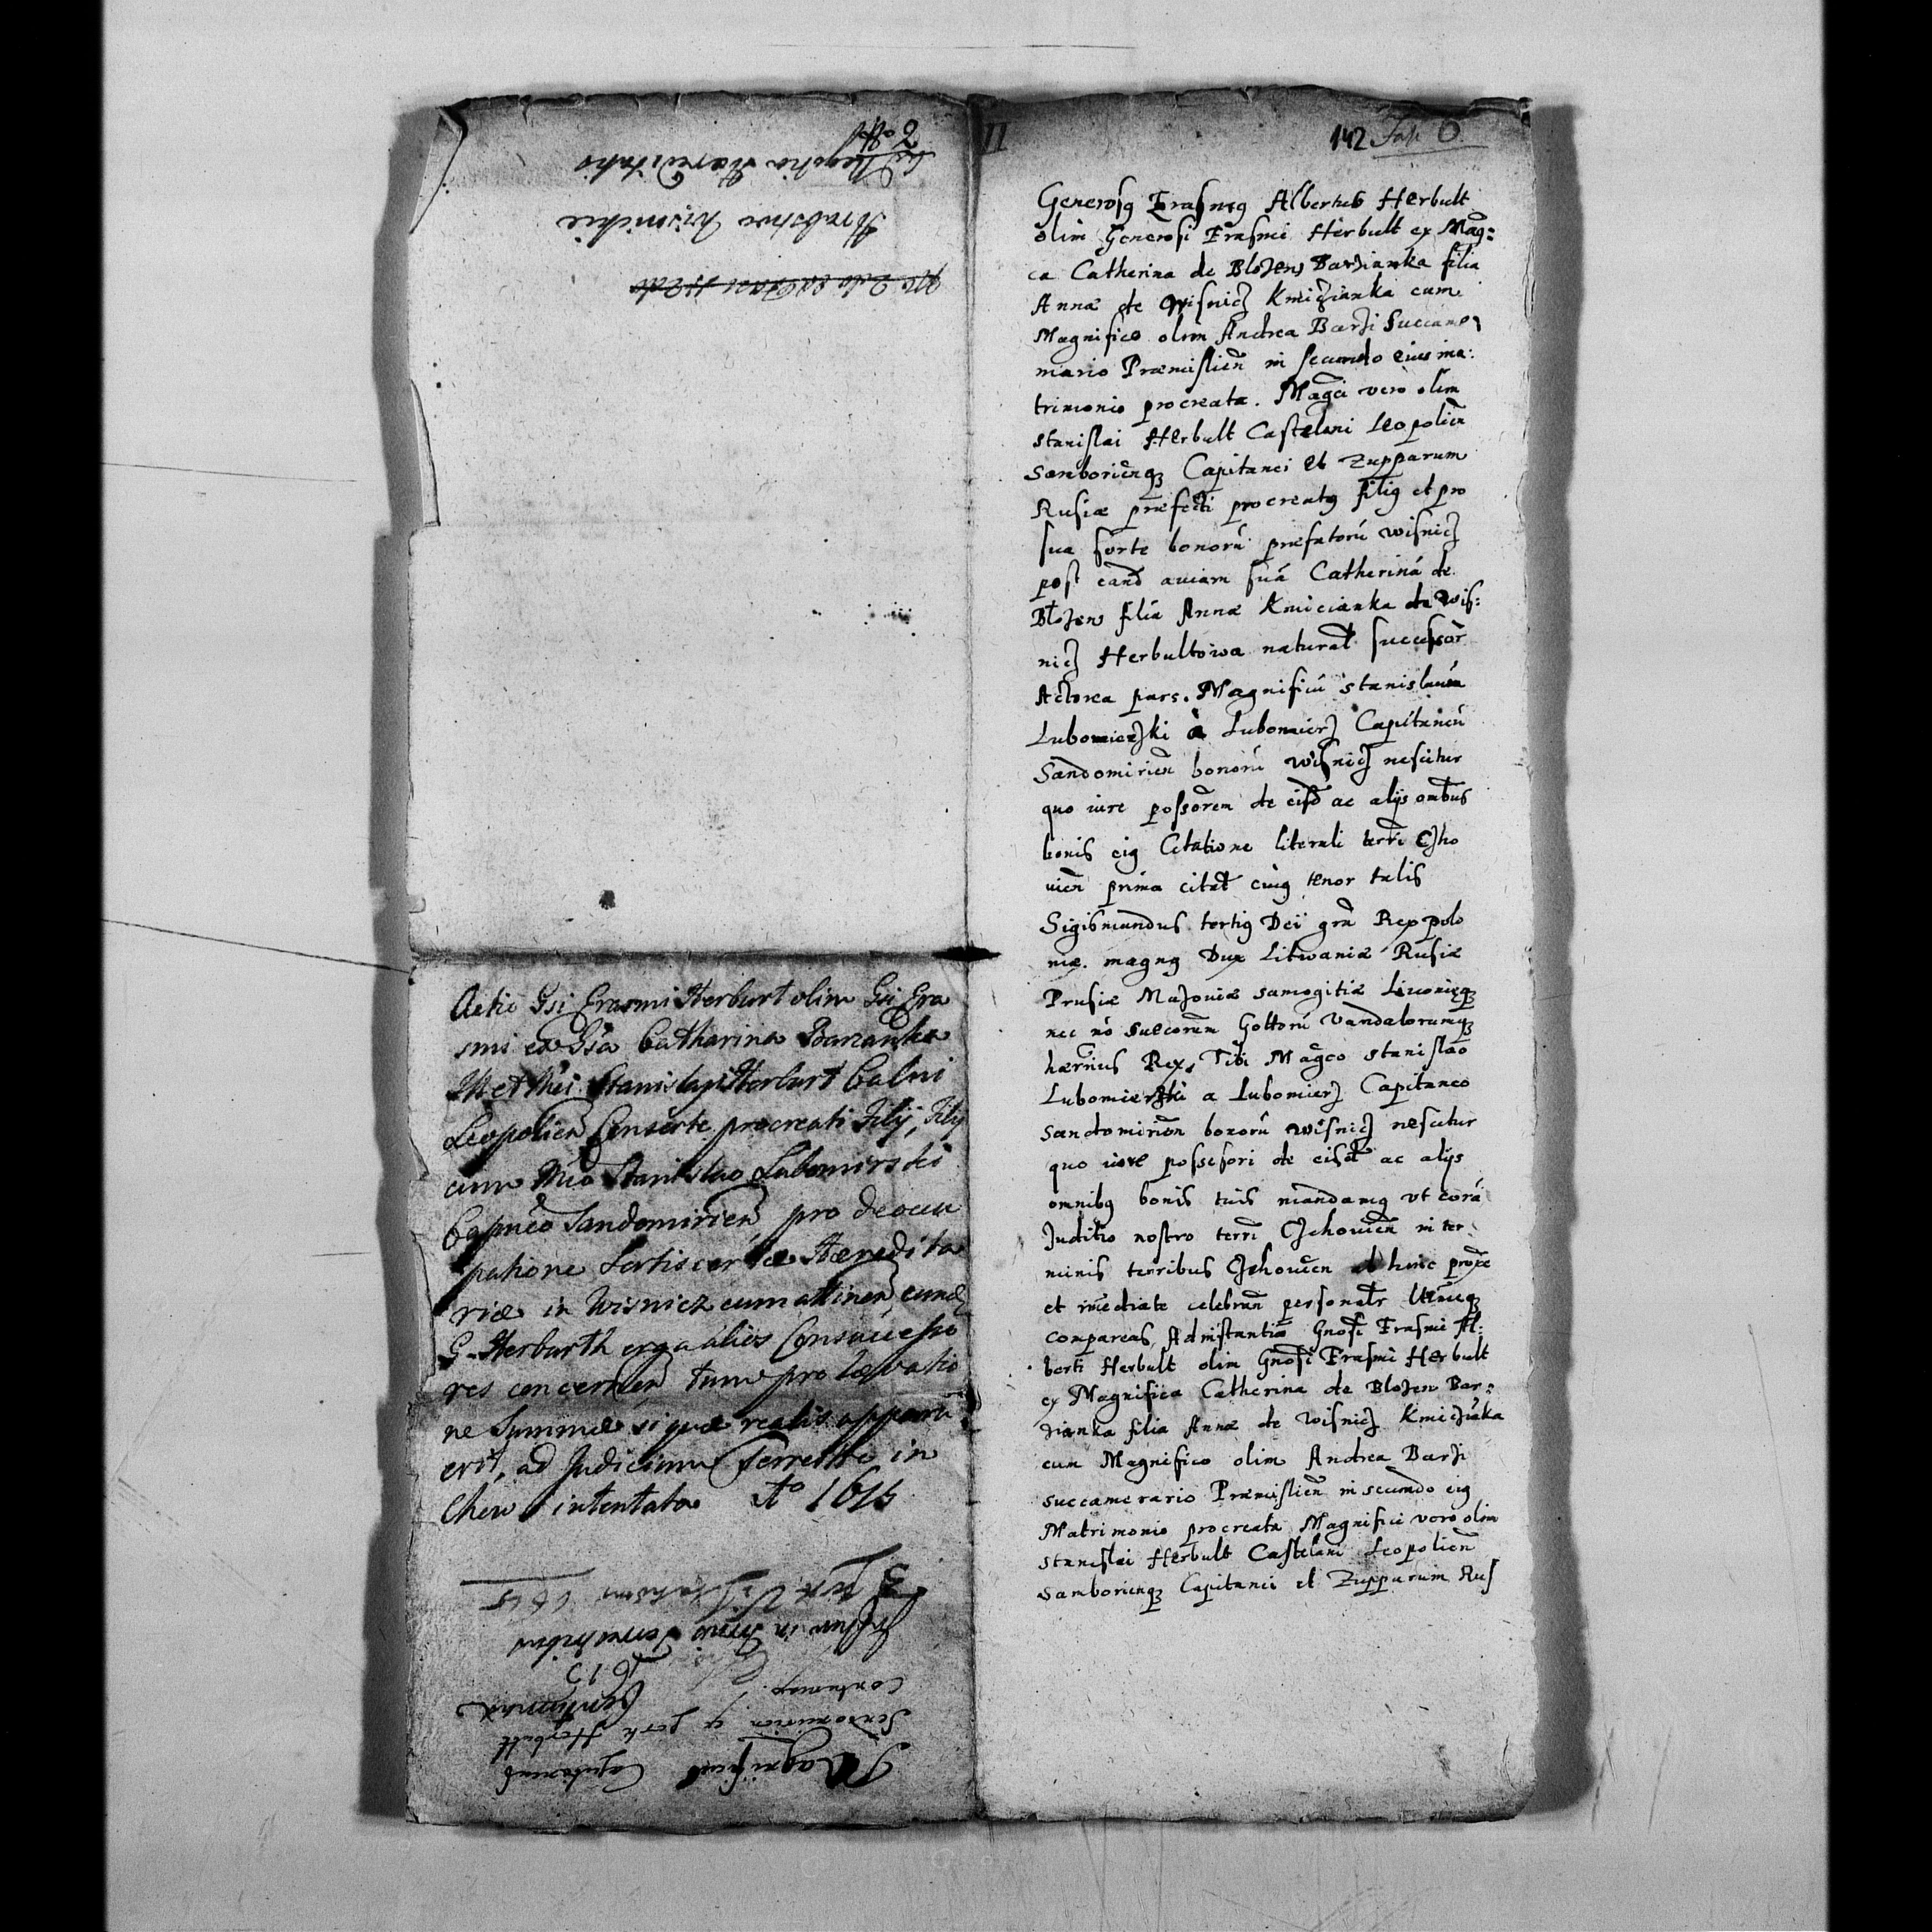 II
142 Fasc 6.
Generosꝰ Erasmꝰ Albertus Herbult
olim Generosi Erasmi Herbult ex Mag:
ca Catherina de Blozew Barzianka filia
Annæ de Wisnicz Kmiczianka cum
Magnifico olim Andrea Barzi Succame
rario Præmislień in secundo eius ma:
trimonio procreata. Magci vero olim
Stanislai Herbult Castelani Leopolień
Samborienqꝫ Capitanei et Zupparum
Rusiæ præfecti procreatꝰ filiꝰ et pro
sua sorte bonorū præfatorū Wisnicz
post eand aviam suā Catherinā de
Blozew filiā Annæ Kmicianka de Wis:
nicz Herbultowa natural successor
Actorea pars. Magnificū Stanislaum
Lubomierzki à Lubomierz Capitaneū
Sandomirień bonorū Wisnicz nescitur
quo iure possorem de eisd ac alijs omibus
bonis eiꝰ Citatione literali terri Czho
vień prima citat cuiꝰ tenor talis
Sigismundus tertiꝰ Dei gra Rex polo
niæ. magnꝰ Dux Litwaniæ Rusiæ
Prusiæ Mazoviæ Samogitiæ Livoniæqꝫ
nec nō Suecorum Gottorū Vandalorumqꝫ
hærius Rex, Tibi Magco Stanislao
Lubomierzki a Lubomierz Capitaneo
Sandomirien bonorū Wisnicz nescitur
quo iure possesori de eisd ac alijs
omnibꝰ bonis tuis mandamꝰ ut corā
Juditio nostro terri Czchovień in ter
minis terribus Czchovien ad hunc proxe
et imediate celebran personalr
compareas, Ad instantiā Gnosi Erasmi Al:
berti Herbult olim Gnosi Erasmi Herbult
ex Magnifica Catherina de Blozew Bar:
zianka filia Annæ de Wisnicz Kmiczianka
cum Magnifico olim Andrea Barzi
succamerario Præmislień in secundo eiꝰ
Matrimonio procreata Magnifici vero olim
Stanislai Herbult Castelani Leopolień
Samborienqꝫ Capitanei et Zupparum Rus
Actio Gsi Erasmi Herburt olim Gsi Era
smi ex Gsa Catharina Barzanka
M et Mci Stanislai Herburt Calni
Leopolien Consorte procreati Filij, Filij
cum Mco Stanislao Lubomirski
Capneo Sandomirien pro deoccu
patione Sortis certæ Hæredita
riæ in Wisnicz cum attinen eund
G. Herburth erga alios Consuccesso
res concernen tum pro levatio
ne Summæ si quæ realis apparu
erit, ad Judicium Terrestre in
Chow intentata Aº 1615
Magnificus Capitaneus
Sandomirien ex parte Herbult
Contumax. Contumax
1615
in Terrestribus
1615
Hrabstwo Wisnickie
Hæreditatis